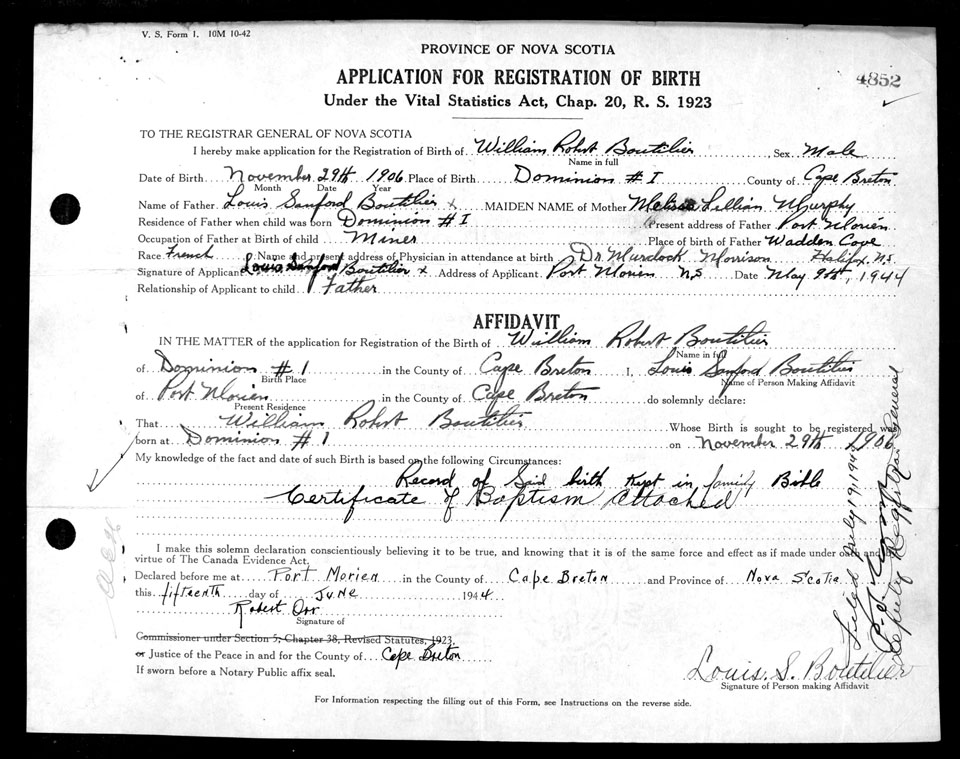 V. S. Form 1. 10M 10-42
PROVINCE OF NOVA SCOTIA
APPLICATION FOR REGISTRATION OF BIRTH
4852
Under the Vital Statistics Act, Chap. 20, R. S. 1923
TO THE REGISTRAR GENERAL OF NOVA SCOTIA
I hereby make application for the Registration of Birth of William Robert Boutilier, Sex Male
Name in full
Date of Birth November 29th 1906 Place of Birth Dominion # 1 County of Cape Breton
Month Date Year
Name of Father Louis Sanford Boutilier x MAIDEN NAME of Mother Melissa Lillian Murphy
Residence of Father when child was born Dominion # 1 Present address of Father Port Morien
Occupation of Father at Birth of child Miner Place of Birth of Father Wadden Cove
Race French Name and present address of Physician in attendance at birth Dr. Murdock Morrison Halifax N.S.
Signature of Applicant Louis Sanford Boutilier x Address of Applicant Port Morien N.S Date May 9th, 1944
Relationship of Applicant to child Father
AFFIDAVIT
IN THE MATTER of the application for Registration of the Birth of William Robert Boutilier
Name in full
of Dominion # 1 in the County of Cape Breton I, Louis Sanford Boutilier
Birth Place Name of Person Making Affidavit
of Port Morien in the County of Cape Breton do solemnly declare:
Present Residence
That William Robert Boutilier Whose Birth is sought to be registered was
born at Dominion # 1 on November 29th 1906
My knowledge of the fact and date of such Birth is based on the following Circumstances:
Record of Said birth Kept in family Bible
Certificate of Baptism Attached
I make this solemn declaration conscientiously believing it to be true, and knowing that it is of the same force and effect as if made under oath and
virtue of The Canada Evidence Act.
Declared before me at Port Morien in the County of Cape Breton and Province of Nova Scotia
this fifteenth day of June 1944
Robert Orr
Signature of
Commissioner under Section 5, Chapter 38, Revised Statutes, 1923.
or Justice of the Peace in and for the County of Cape Breton
If sworn before a Notary Public affix seal.
Louis. S. Boutilier
Signature of Person making Affidavit
For Information respecting the filling out of this Form, see Instructions on the reverse side.
Filed July 19, 194
Deputy Registrar General